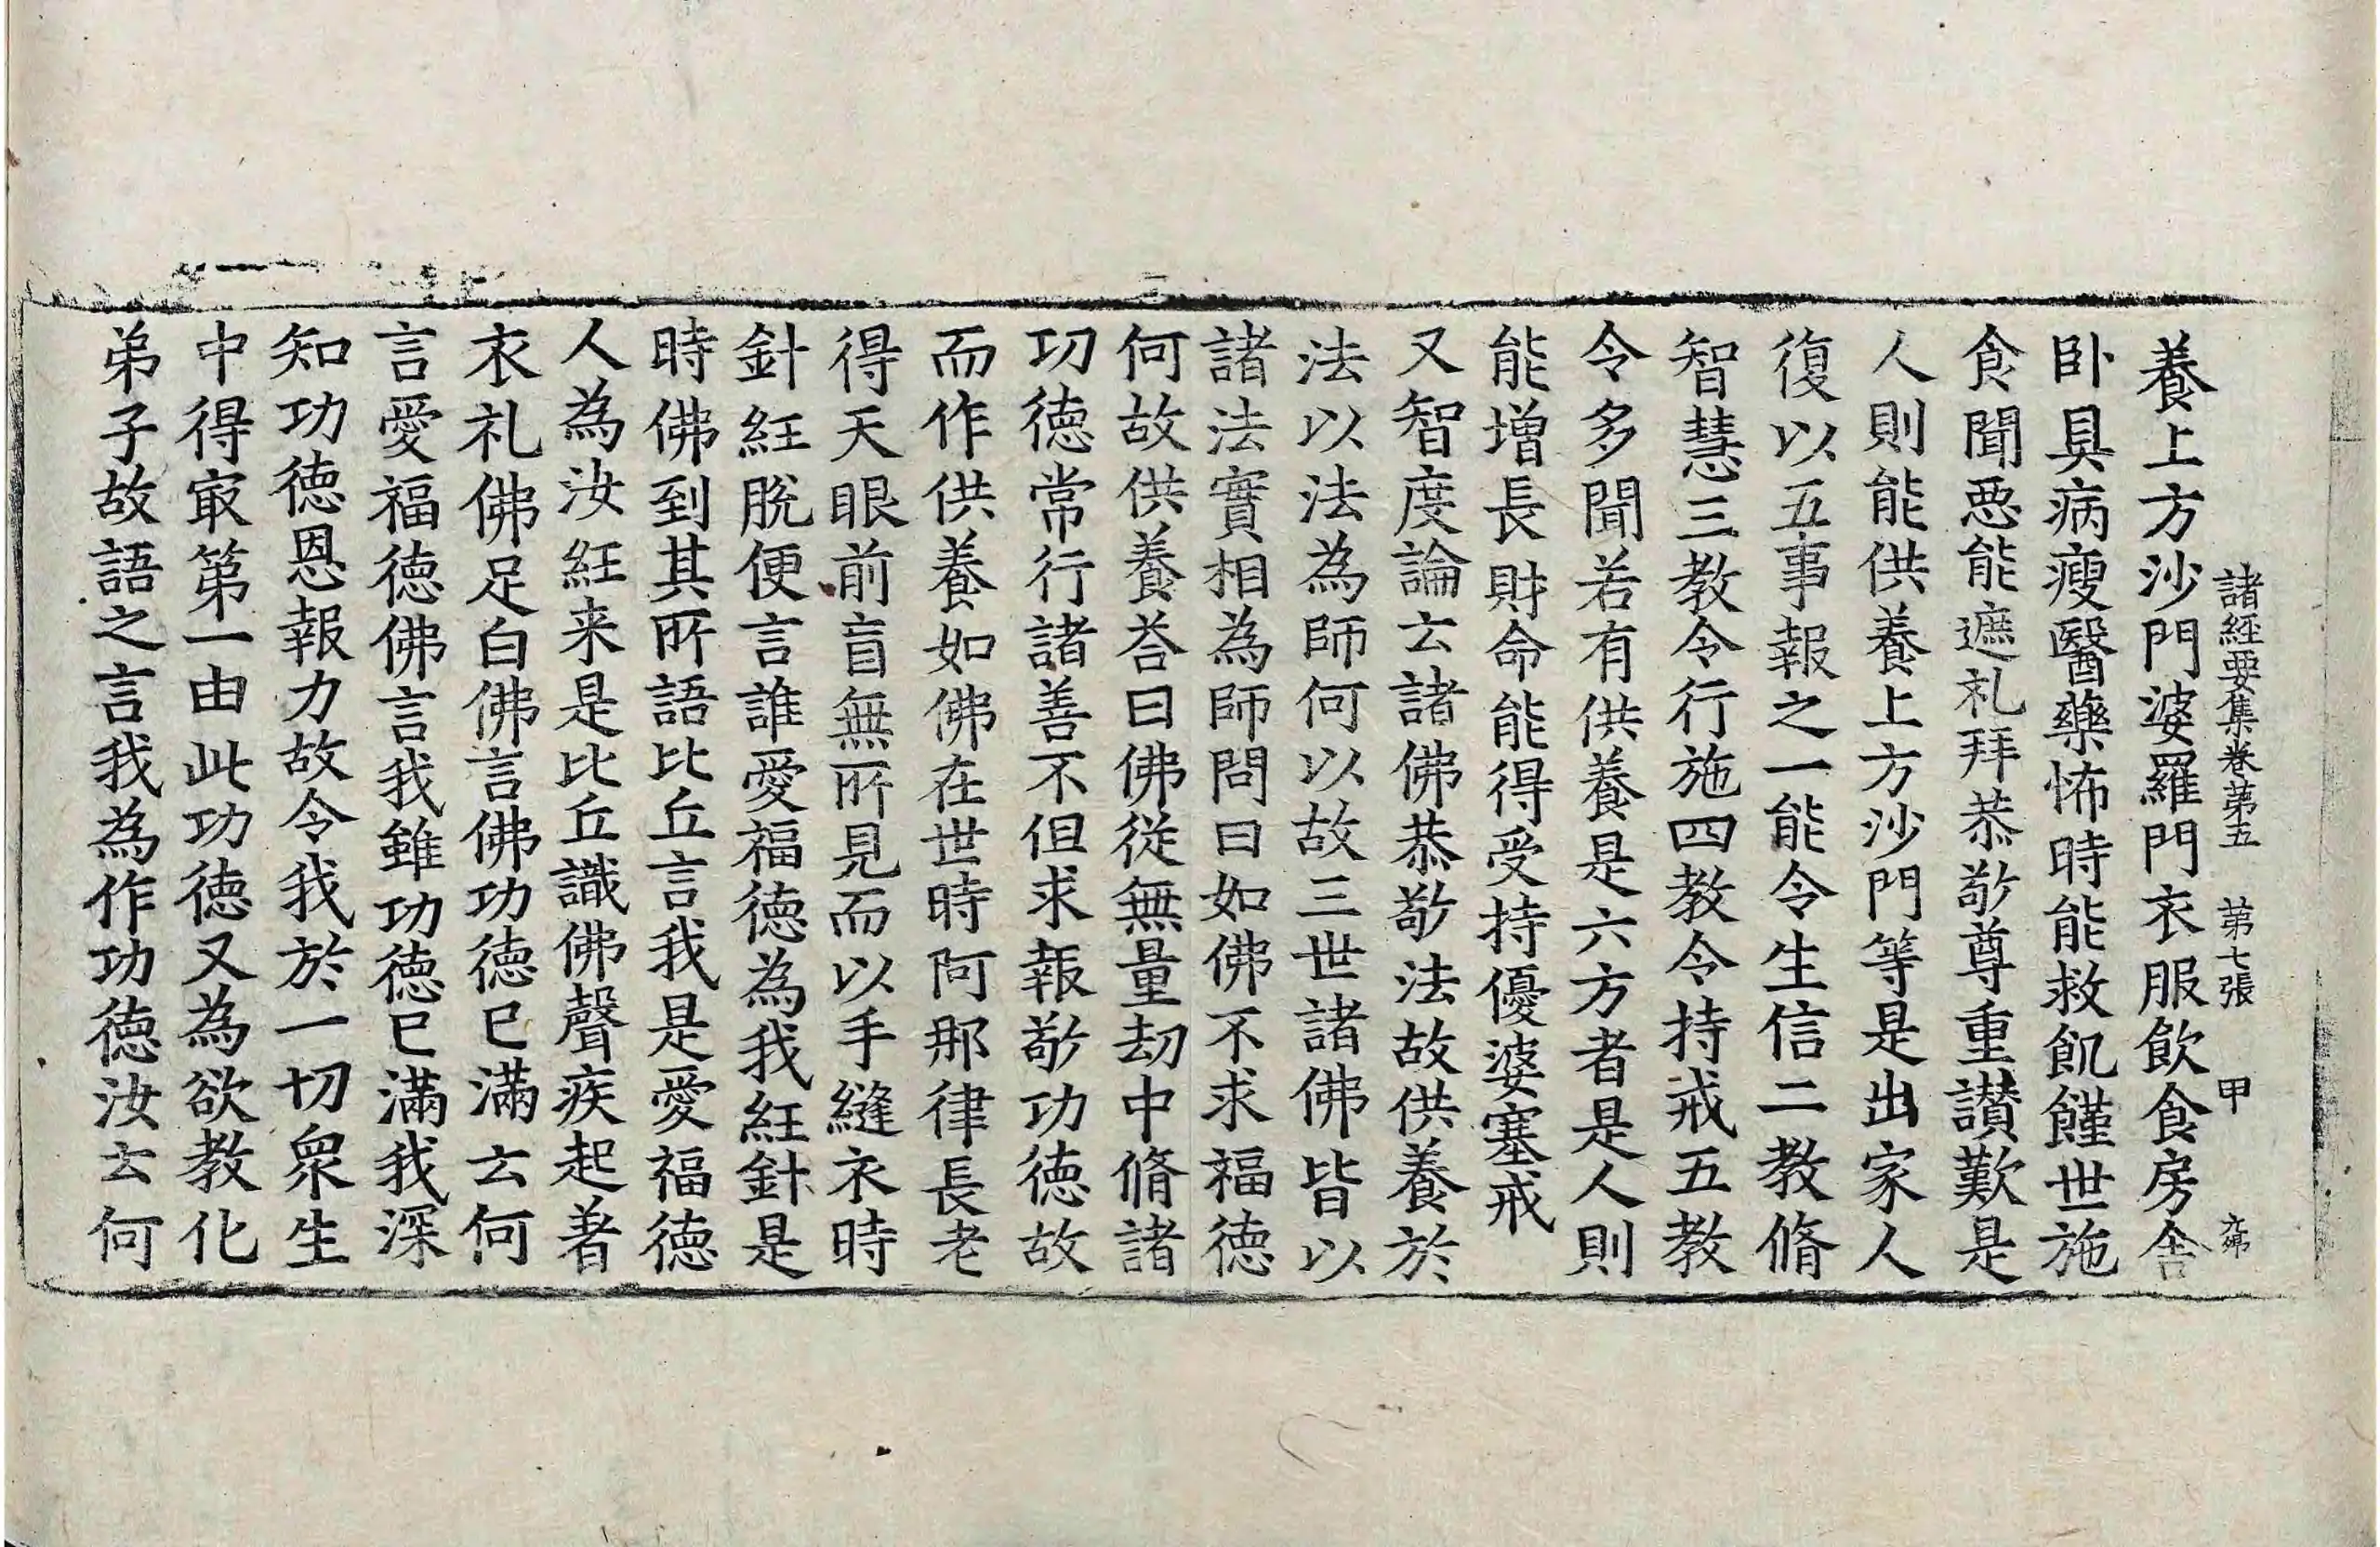 諸經要集卷第五 第七張 甲
養上方沙門婆羅門衣服飲食房舎
卧具病瘦醫藥怖時能救飢饉世施
食聞惡能遮礼拜恭敬尊重讃歎是
人則能供養上方沙門等是出家人
復以五事報之一能令生信二教脩
智慧三教令行施四教令持戒五教
令多聞若有供養是六方者是人則
能増長財命能得受持優婆塞戒
又智度論云諸佛恭敬法故供養於
法以法為師何以故三世諸佛皆以
諸法實相為師問曰如佛不求福德
何故供養荅曰佛從無量劫中脩諸
功德常行諸善不但求報敬功德故
而作供養如佛在世時阿那律長老
得天眼前盲無所見而以手縫衣時
針紝脫便言誰愛福德為我紝針是
時佛到其所語比丘言我是愛福德
人為汝紝来是比丘識佛聲疾起著
衣礼佛足白佛言佛功德已滿云何
言愛福德佛言我雖功德已滿我深
知功德恩報力故令我於一切衆生
中得冣第一由此功德又為欲教化
弟子故語之言我為作功德汝云何